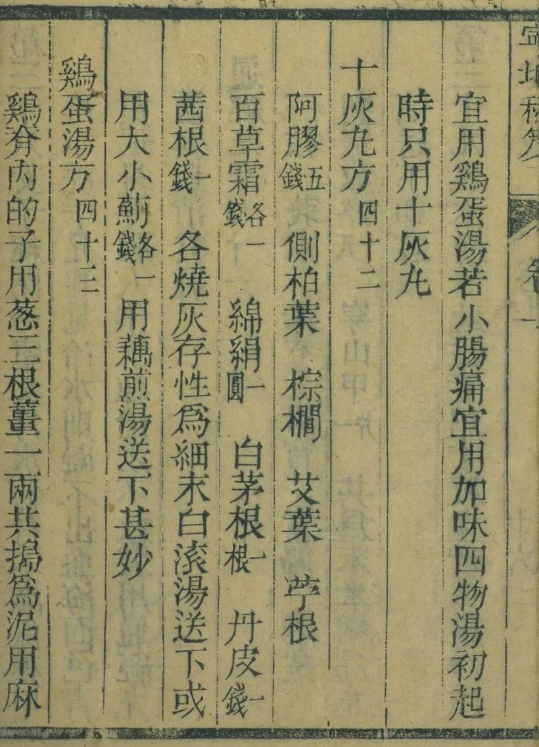 宜用鷄蛋湯若小腸痛宜用加味四物湯初起
時只用十灰丸
十灰丸方 四十二
阿膠五錢 側柏葉 棕櫚 艾葉 苧根
百草霜各一錢 綿絹一圓 白茅根一根 丹皮一錢
茜根一錢 各燒灰存性爲細末白滚湯送下或
用大小薊各一錢 用藕煎湯送下甚妙
鷄蛋湯方 四十三
鷄脊内的子用葱三根薑一兩共搗爲泥用麻